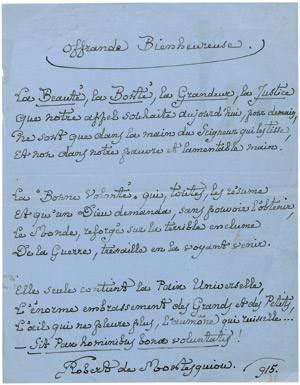 Offrande Bienheureuse.
La Beauté, la Bonté, la Grandeur, la Justice
Que notre appel souhaite aujourd'hui, pour demain,
Ne sont que dans la main du Seigneur qui les tisse,
Et non dans notre pauvre et lamentable main.
La "Bonne Volonté" qui, toutes, les résume
Et qu'un Dieu demanda, sans pouvoir l'obtenir,
Le Monde, reforgé sur la terrible enclume
De la Guerre, tressaille en la voyant venir.
Elle seule contient la Paix Universelle,
L'énorme embrassement des Grands et des Petits,
L'œil qui ne pleure plus, l'aumône qui ruisselle...
— Sit Pax hominibus bonæ voluntatis !
Robert de Montesquiou.
915.